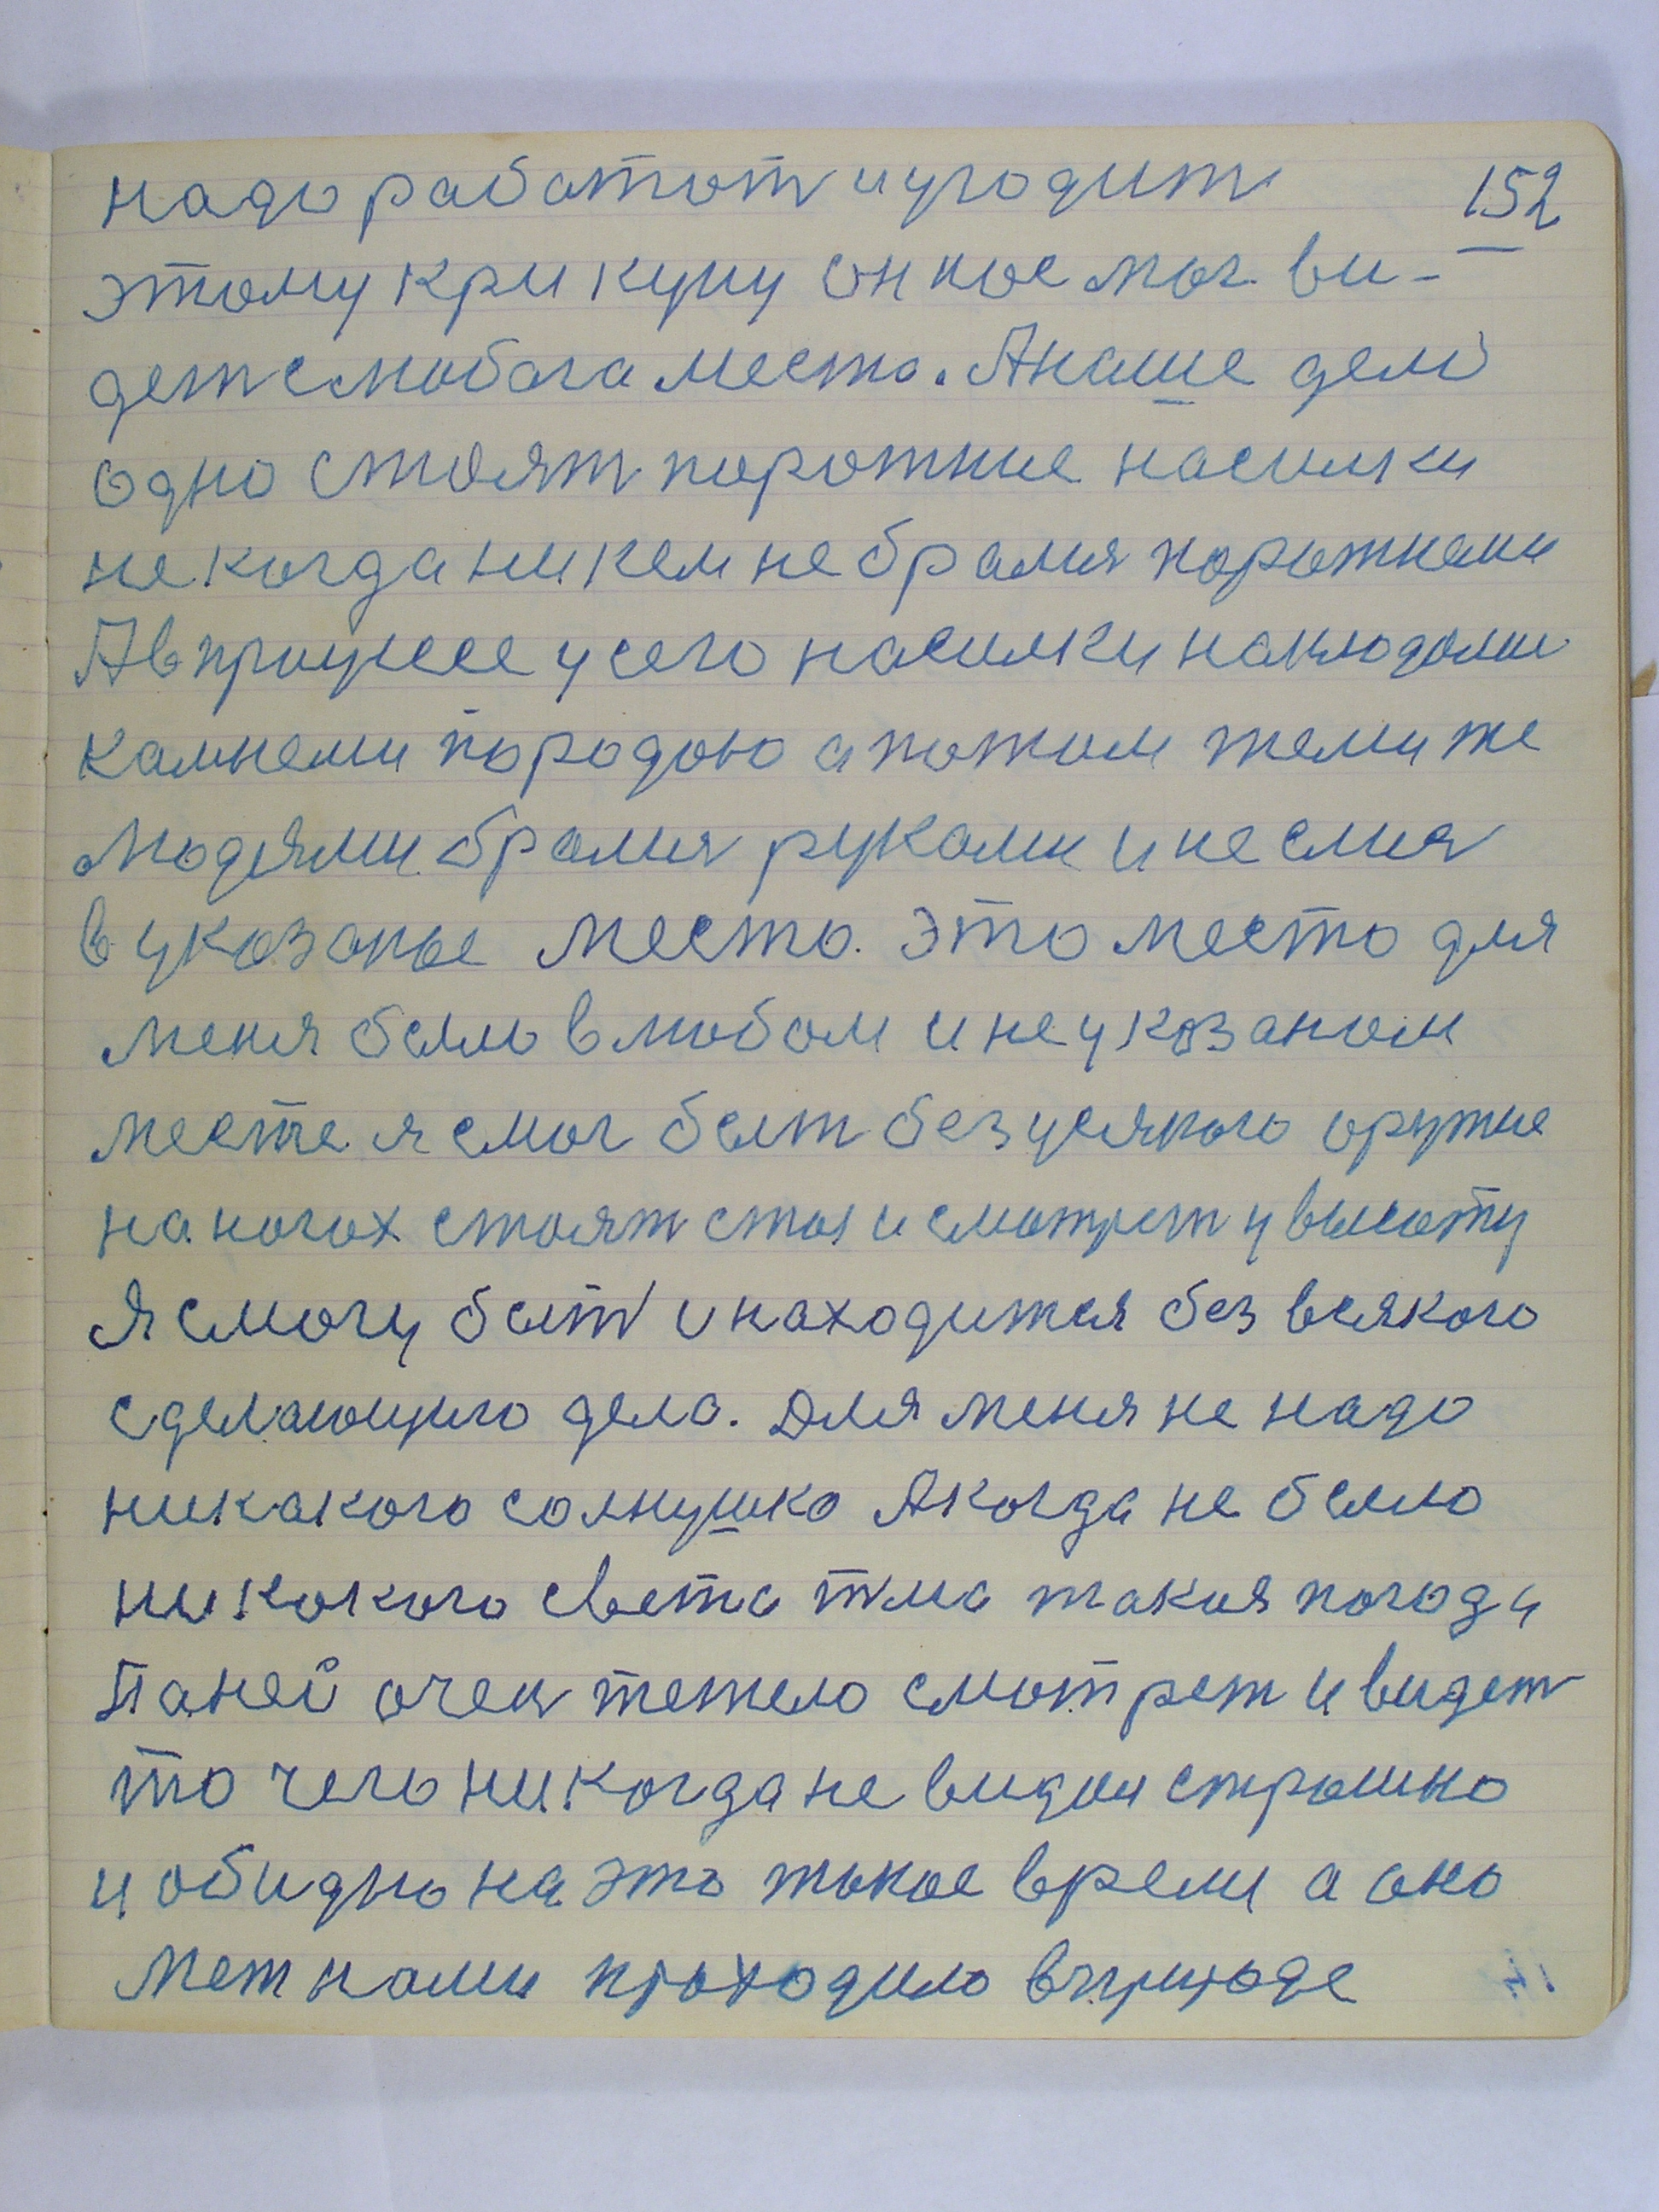 надо работат и угодит 152
этому крикуну он нас мог ви-
дет с любога места. А наше дело
одно стоят порожние насилки
не когда ни кем не бралися порожнеми
А впрочее усего насилки накладали
камнеми породою а потом теми же
людями бралися руками и неслися
в указаное место. Это место для
меня было в любом и не указаном
месте я смог быт без усякого оружие
на ногох стоят стоя и смотрет у высоту
Я смогу быт и находится без всякого
сделающего дела. Для меня не надо
никакого солнушко А когда не было
ни кокого света тма такая погода
Па ней очен тежело смотрет и видет
то чего никогда не видел страшно
и обидно на это такое време а оно
меж нами проходило в природе